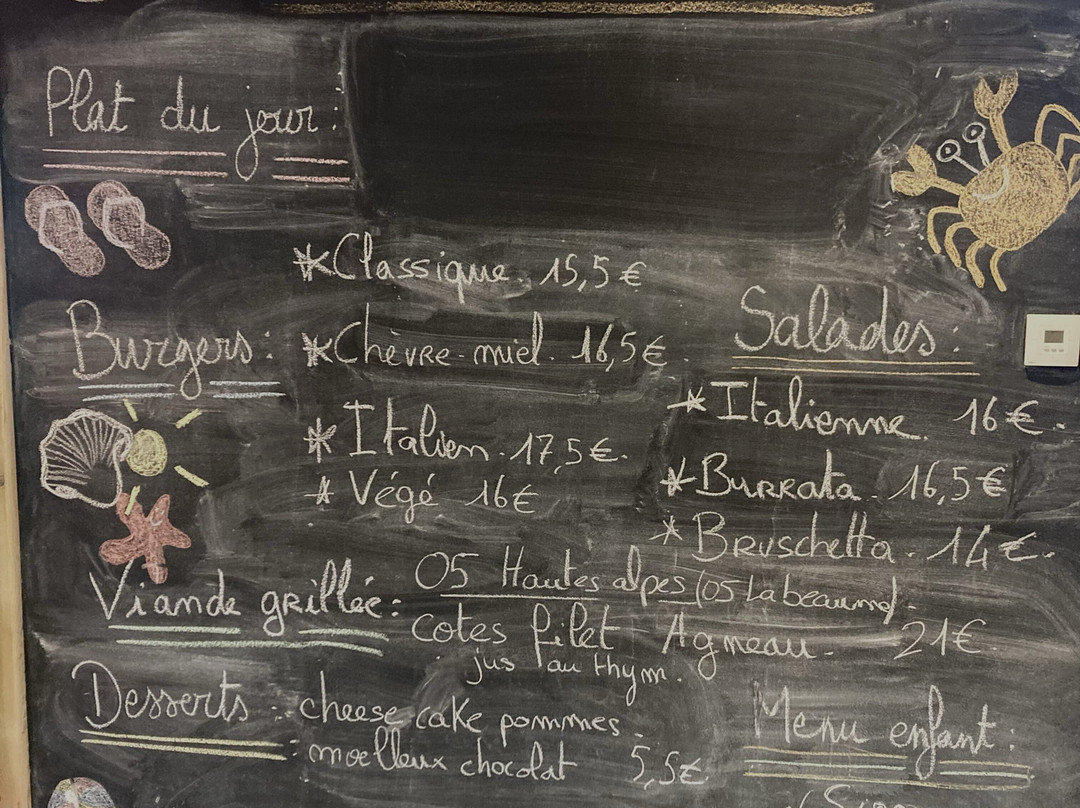 Plat du jour :
Burgers :
* Classique. 15,5 €
* Chèvre-miel. 16,5 €.
* Italien. 17,5 €.
* Végé 16 €
Salades :
* Italienne. 16 €.
* Burrata. 16,5 €
* Bruschetta. 14 €.
Viande grillée :
05 Hautes alpes (05 Labeaume).
cotes filet Agneau. 21 €
jus au thym.
Desserts :
- cheese cake pommes.
- moelleux chocolat 5,5 €
Menu enfant :